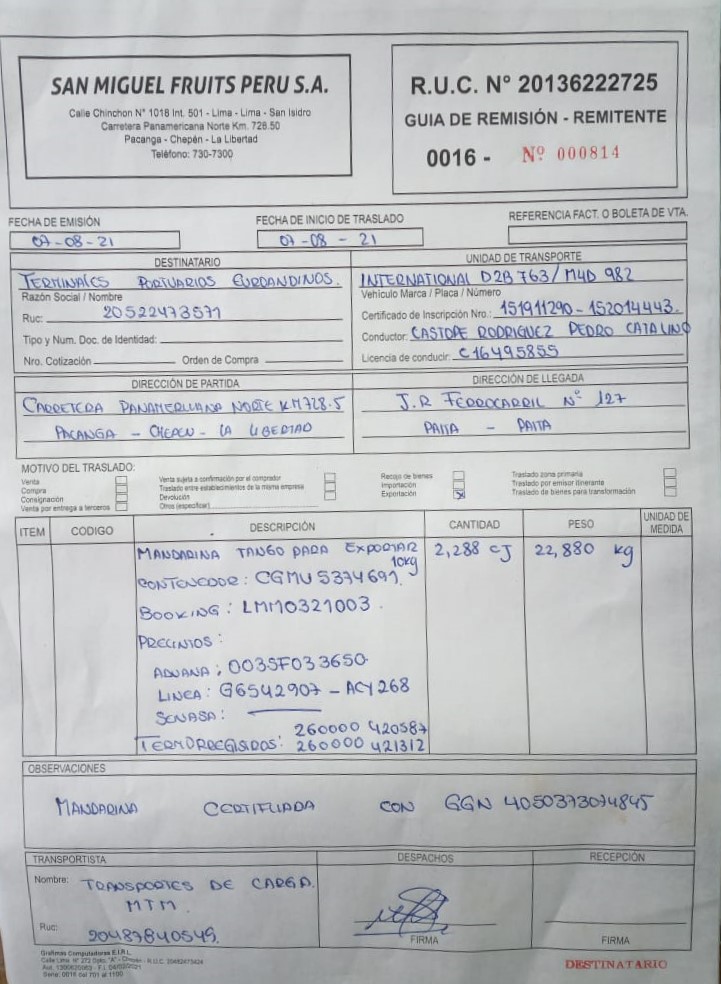 SAN MIGUEL FRUITS PERU S.A.
Calle Chinchon N° 1018 Int. 501 - Lima - Lima - San Isidro
Carretera Panamericana Norte Km. 728.50
Pacanga - Chepén - La Libertad
Teléfono: 730-7300
R.U.C. N° 20136222725
GUIA DE REMISIÓN - REMITENTE
0016 - Nº 000814
FECHA DE EMISIÓN
07-08-21
FECHA DE INICIO DE TRASLADO
07-08-21
REFERENCIA FACT. O BOLETA DE VTA.
DESTINATARIO
TERMINALES PORTUARIOS EUROANDINOS.
Razón Social / Nombre
Ruc: 20522473571
Tipo y Num. Doc. de Identidad:
Nro. Cotización Orden de Compra
UNIDAD DE TRANSPORTE
INTERNATIONAL D2B 763/M4D 982
Vehículo Marca / Placa / Número
Certificado de Inscripción Nro.: 151911290-152014443.
Conductor: CASTOPE RODRIGUEZ PEDRO CATALINO
Licencia de conducir: C16495855
DIRECCIÓN DE PARTIDA
CARRETERA PANAMERICANA NORTE KM728.5
PACANGA - CHEPEN - LA LIBERTAD
DIRECCIÓN DE LLEGADA
J.R FERROCARRIL Nº 127
PAITA - PAITA
MOTIVO DEL TRASLADO:
Venta
Compra
Consignación
Venta por entrega a terceros
Venta sujeta a confirmación por el comprador
Traslado entre establecimientos de la misma empresa
Devolución
Otros (especificar)
Recojo de bienes
Importación
Exportación
Traslado zona primaria
Traslado por emisor itinerante
Traslado de bienes para transformación
ITEM CODIGO DESCRIPCIÓN CANTIDAD PESO UNIDAD DE MEDIDA
MANDARINA TANGO PARA EXPORTAR 10kg 2,288 CJ 22,880 kg
CONTENEDOR: CGMU 5374691
BOOKING: LMM0321003.
PRECINTOS:
ADUANA: 0035F033650
LINEA: G6542907 - ACY268
SENASA:
TERMOREGISTROS: 260000 420587
260000 421312
OBSERVACIONES
MANDARINA CERTIFICADA CON GGN 4050373074845
TRANSPORTISTA
Nombre: TRANSPORTES DE CARGA.
MTM.
Ruc: 20487840549.
DESPACHOS
FIRMA
RECEPCIÓN
FIRMA
Grafimas Computadoras E.I.R.L.
Serie: 0016 del 701 al 1100
DESTINATARIO